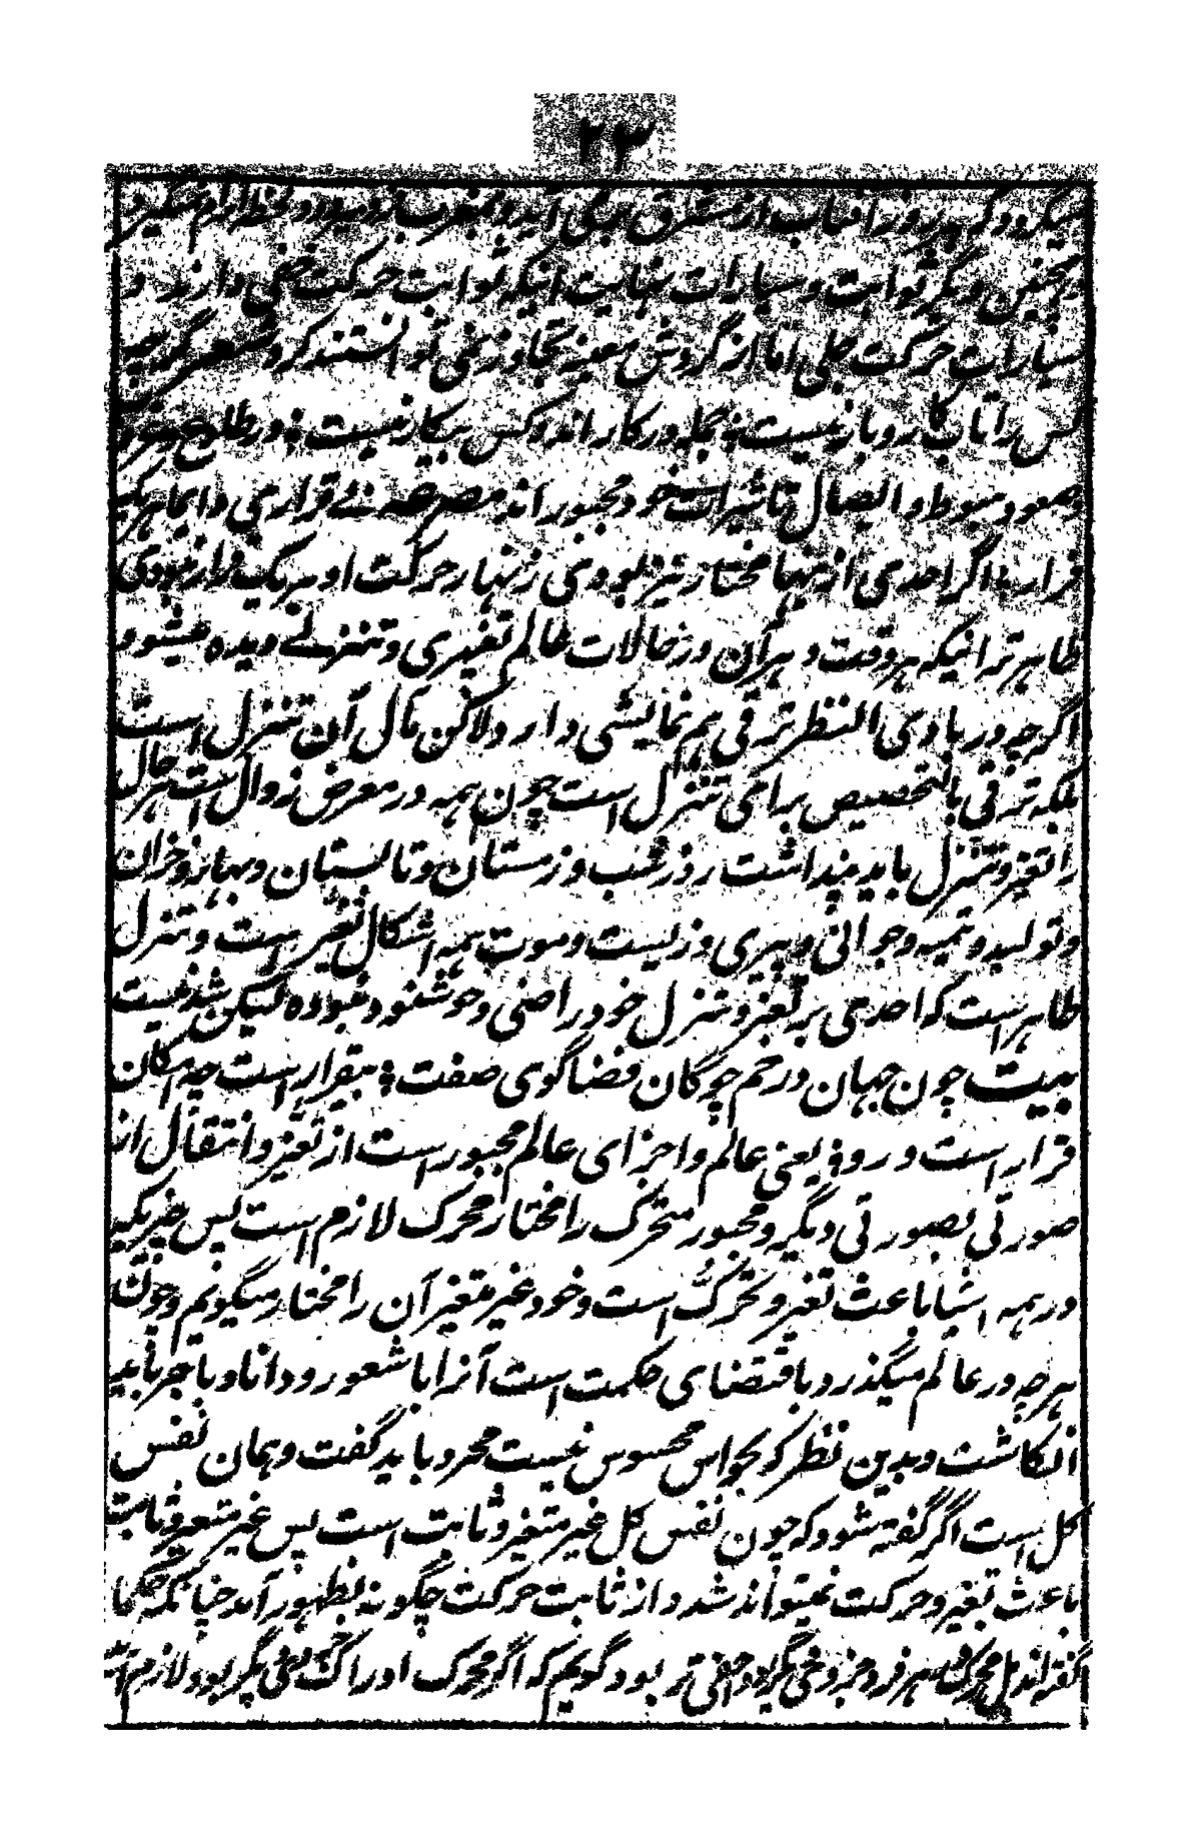 ۲۳
میگردد گر هر روز آفتاب از مشرق بر می آید و بمغرب فرو میرود و لحظه آرام نمیگیرد
همچنین دیگر ثوابت و سیارات نهایت اینکه ثوابت حرکت خفی دارند و
سیارات حرکت جلی اما از گردش معینه تجاوز نمی توانستند کرد شعر گرچه
کس را تاب کار و بار نیست ؛ جمله در کار اند و کس بیکار نیست ؛ در طلوع و غروب
صعود و هبوط و اتصال تاثیرات خود مجبور اند مصرعه نے قراری دایما هر یک
قرار ؛ اگر احدی از ینها مختار نیز بودی زینهار حرکت او بر یک قرار نبودی
ظاهر تر اینکه هر وقت و هر آن در حالات عالم تغیری و تنزلے دیده میشود
اگرچه در بادی النظر ترقی هم نمایشی دارد ولاکن مآل آن تنزل است
بلکه ترقی بالتخصیص برای تنزل است چون همه در معرض زوال است هر حال
را تغیر و تنزل باید پنداشت روز و شب و زمستان و تابستان و بهار و خزان
و تولید و تنمیه و جوانی و پیری و زیست و موت همه اشکال تغیر است و تنزل
ظاهر است که احدی بر تغیر و تنزل خود راضی و خوشنود نبوده لیکن شدنیست
بیت چون جهان در خم چوگان قضا گوی صفت ؛ بیقرار است چه امکان
قرار است درو ؛ یعنی عالم و اجزای عالم مجبور است از تغیر و انتقال از
صورتی بصورتی دیگر و مجبور متحرک را مختار محرک لازم است پس چیزیکه
در همه اشیا باعث تغیر و تحرک است و خود غیر متغیر آن را مختار میگوئیم و چون
هرچه در عالم میگذرد باقتضای حکمت است آنرا با شعور و دانا و با خبر باید
انگاشت و بدین نظر که بحواس محسوس نیست مجرد باید گفت و همان نفس
کل است اگر گفته شود که چون نفس کل غیر متغیر و ثابت است پس غیر متغیر و ثابت
باعث تغیر و حرکت نمیتواند شد و از ثابت حرکت چگونه بظهور آمد چنانکه حکما
گفته اند بل محرک هر فرد جزوی دیگر بود خفی تر بود گویم که اگر محرک او را محرک دیگر بود لازم آید